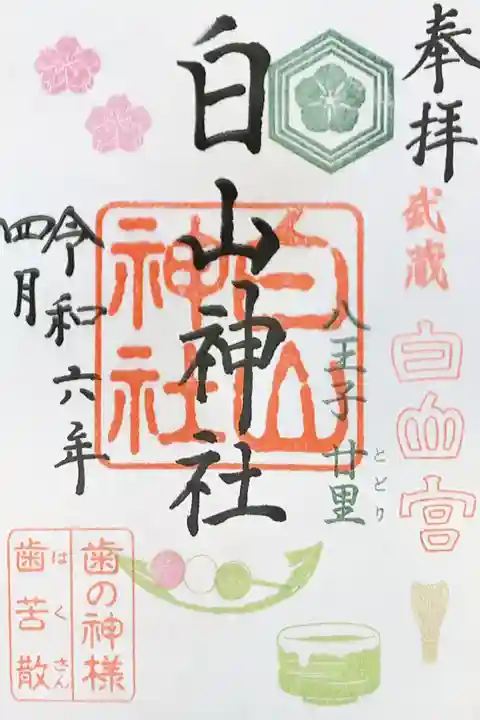 奉拝
武蔵
白山宮
八王子 廿里
とどり
白山神社
白山
神社
令和六年
四月
歯の神様
歯苦散
はくさん